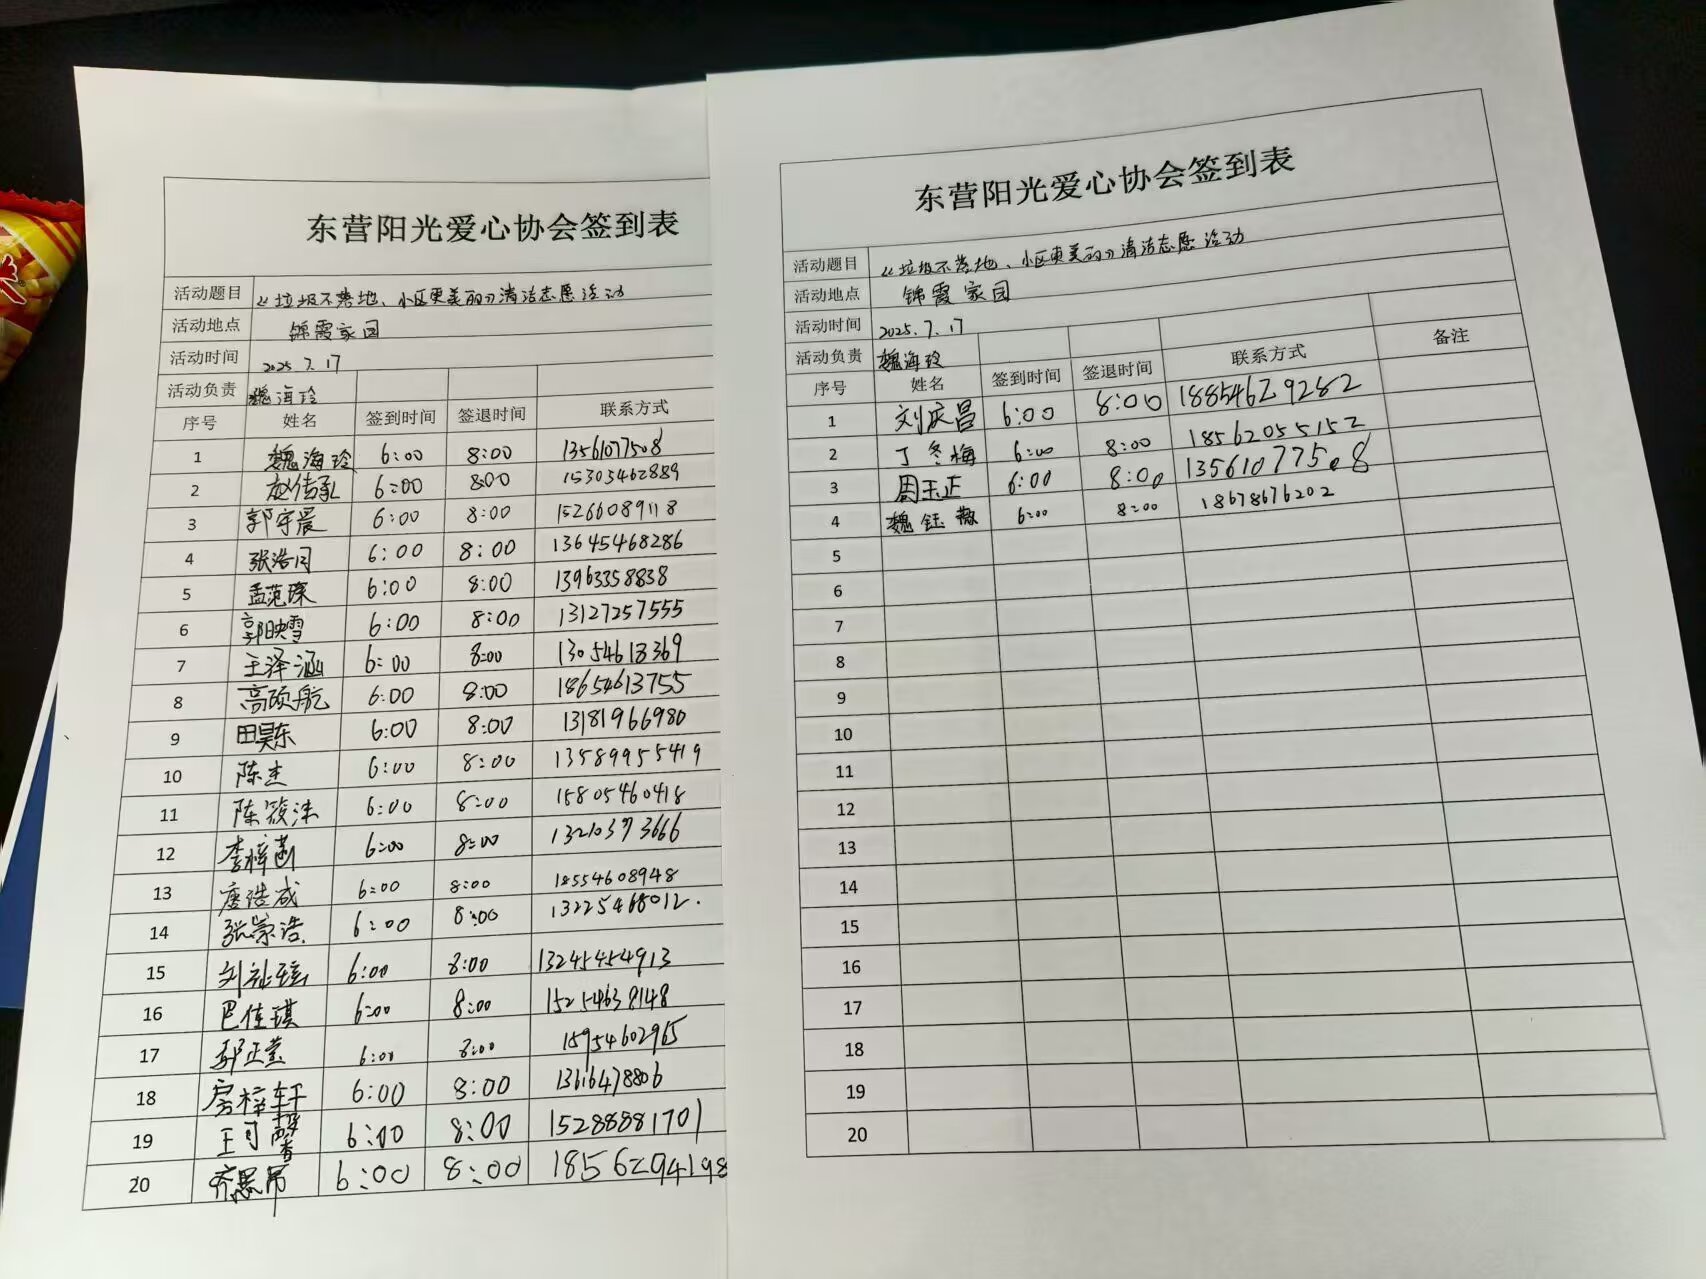 东营阳光爱心协会签到表
活动题目 “垃圾不落地、小区更美丽”清洁志愿活动
活动地点 锦霞家园
活动时间 2025.7.17
活动负责 魏海玲
序号 姓名 签到时间 签退时间 联系方式
1 魏海玲 6:00 8:00 13561077508
2 赵传承 6:00 8:00 15305462889
3 郭宇晨 6:00 8:00 15266089118
4 张浩闪 6:00 8:00 13645468286
5 孟范琛 6:00 8:00 13963358838
6 郭映雪 6:00 8:00 13127257555
7 王泽涵 6:00 8:00 13054618369
8 高硕航 6:00 8:00 18654613755
9 田昊东 6:00 8:00 13181966980
10 陈杰 6:00 8:00 13589955419
11 陈筱沫 6:00 8:00 15805460418
12 李梓菡 6:00 8:00 13210373666
13 唐浩成 6:00 8:00 18554608948
14 张家浩 6:00 8:00 13225468012.
15 刘祉瑶 6:00 8:00 13245454913
16 巴佳琪 6:00 8:00 15254638148
17 郭正莹 6:00 8:00 15954602965
18 房梓轩 6:00 8:00 13616478806
19 王可馨 6:00 8:00 15288881701
20 齐思帛 6:00 8:00 1856294198
东营阳光爱心协会签到表
活动题目 “垃圾不落地、小区更美丽”清洁志愿活动
活动地点 锦霞家园
活动时间 2025.7.17
活动负责 魏海玲
序号 姓名 签到时间 签退时间 联系方式 备注
1 刘庆昌 6:00 8:00 18854629282
2 丁冬梅 6:00 8:00 18562055152
3 周玉正 6:00 8:00 13561077508
4 魏钰薇 6:00 8:00 18678676202
5
6
7
8
9
10
11
12
13
14
15
16
17
18
19
20